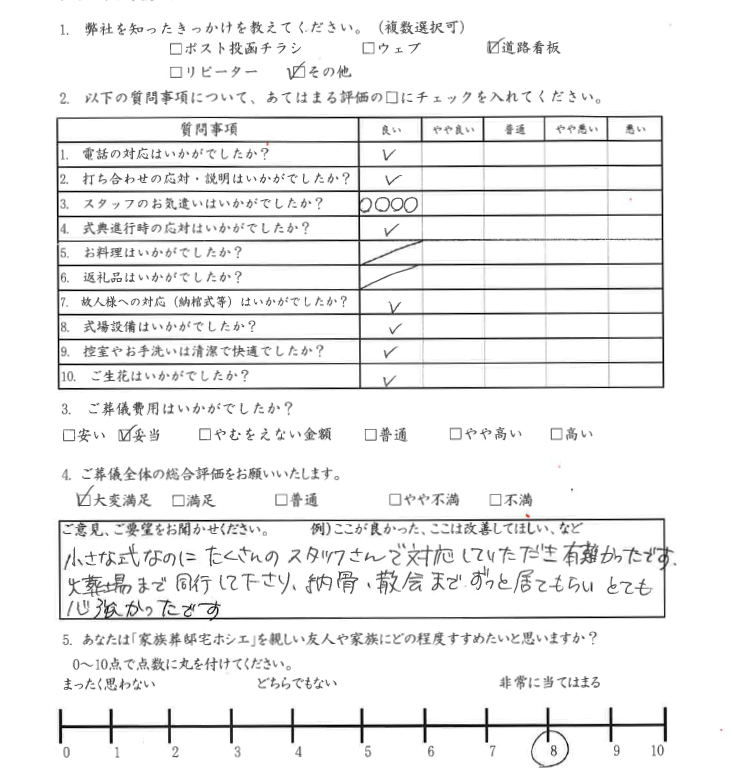 1. 弊社を知ったきっかけを教えてください。（複数選択可）
□ポスト投函チラシ □ウェブ ☑道路看板
□リピーター ☑その他
2. 以下の質問事項について、あてはまる評価の□にチェックを入れてください。
質問事項 良い やや良い 普通 やや悪い 悪い
1. 電話の対応はいかがでしたか？ ✓
2. 打ち合わせの応対・説明はいかがでしたか？ ✓
3. スタッフのお気遣いはいかがでしたか？ ○○○○
4. 式典進行時の応対はいかがでしたか？ ✓
5. お料理はいかがでしたか？ ／
6. 返礼品はいかがでしたか？ ／
7. 故人様への対応（納棺式等）はいかがでしたか？ ✓
8. 式場設備はいかがでしたか？ ✓
9. 控室やお手洗いは清潔で快適でしたか？ ✓
10. ご生花はいかがでしたか？ ✓
3. ご葬儀費用はいかがでしたか？
□安い ☑妥当 □やむをえない金額 □普通 □やや高い □高い
4. ご葬儀全体の総合評価をお願いいたします。
☑大変満足 □満足 □普通 □やや不満 □不満
ご意見、ご要望をお聞かせください。 例）ここが良かった、ここは改善してほしい、など
小さな式なのに たくさんの スタッフさんで対応していただき 有難かったです。
火葬場まで同行して下さり、納骨、散会まで ずっと居てもらい とても
心強かったです
5. あなたは「家族葬邸宅ホシエ」を親しい友人や家族にどの程度すすめたいと思いますか？
0～10点で点数に丸を付けてください。
まったく思わない どちらでもない 非常に当てはまる
0 1 2 3 4 5 6 7 8 9 10